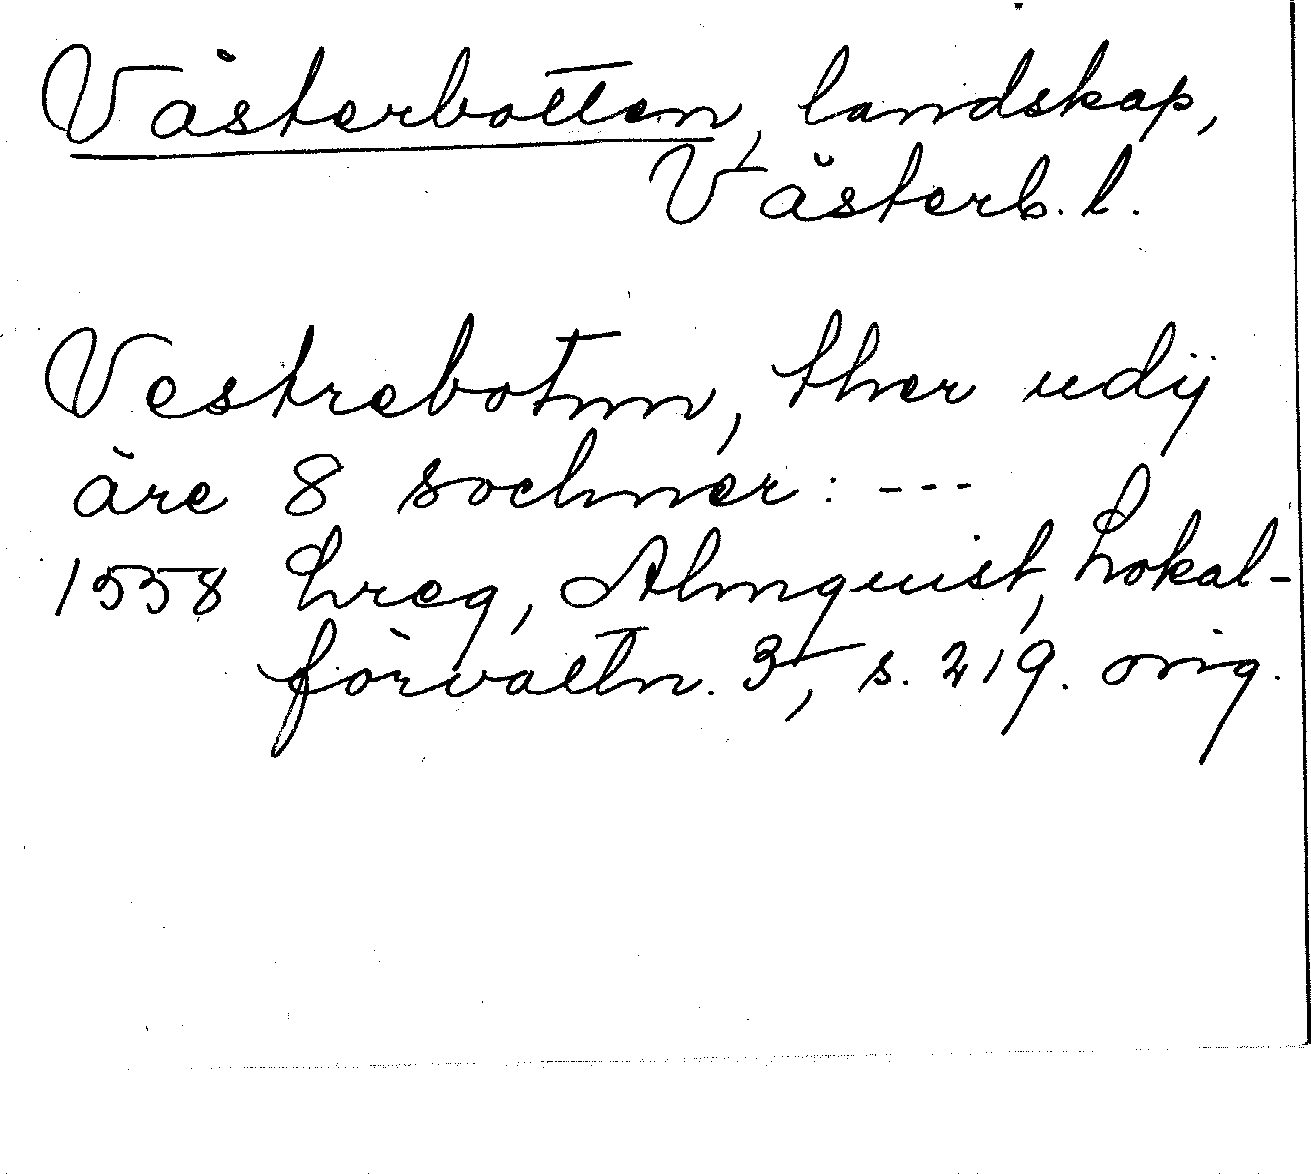 Västerbotten, landskap,
Västerb. l.
Vestrebotnn, ther udÿ
äre 8 sochner: ---
1558 Lreg, Almquist, Lokal-
förvaltn. 3, s. 219. orig.